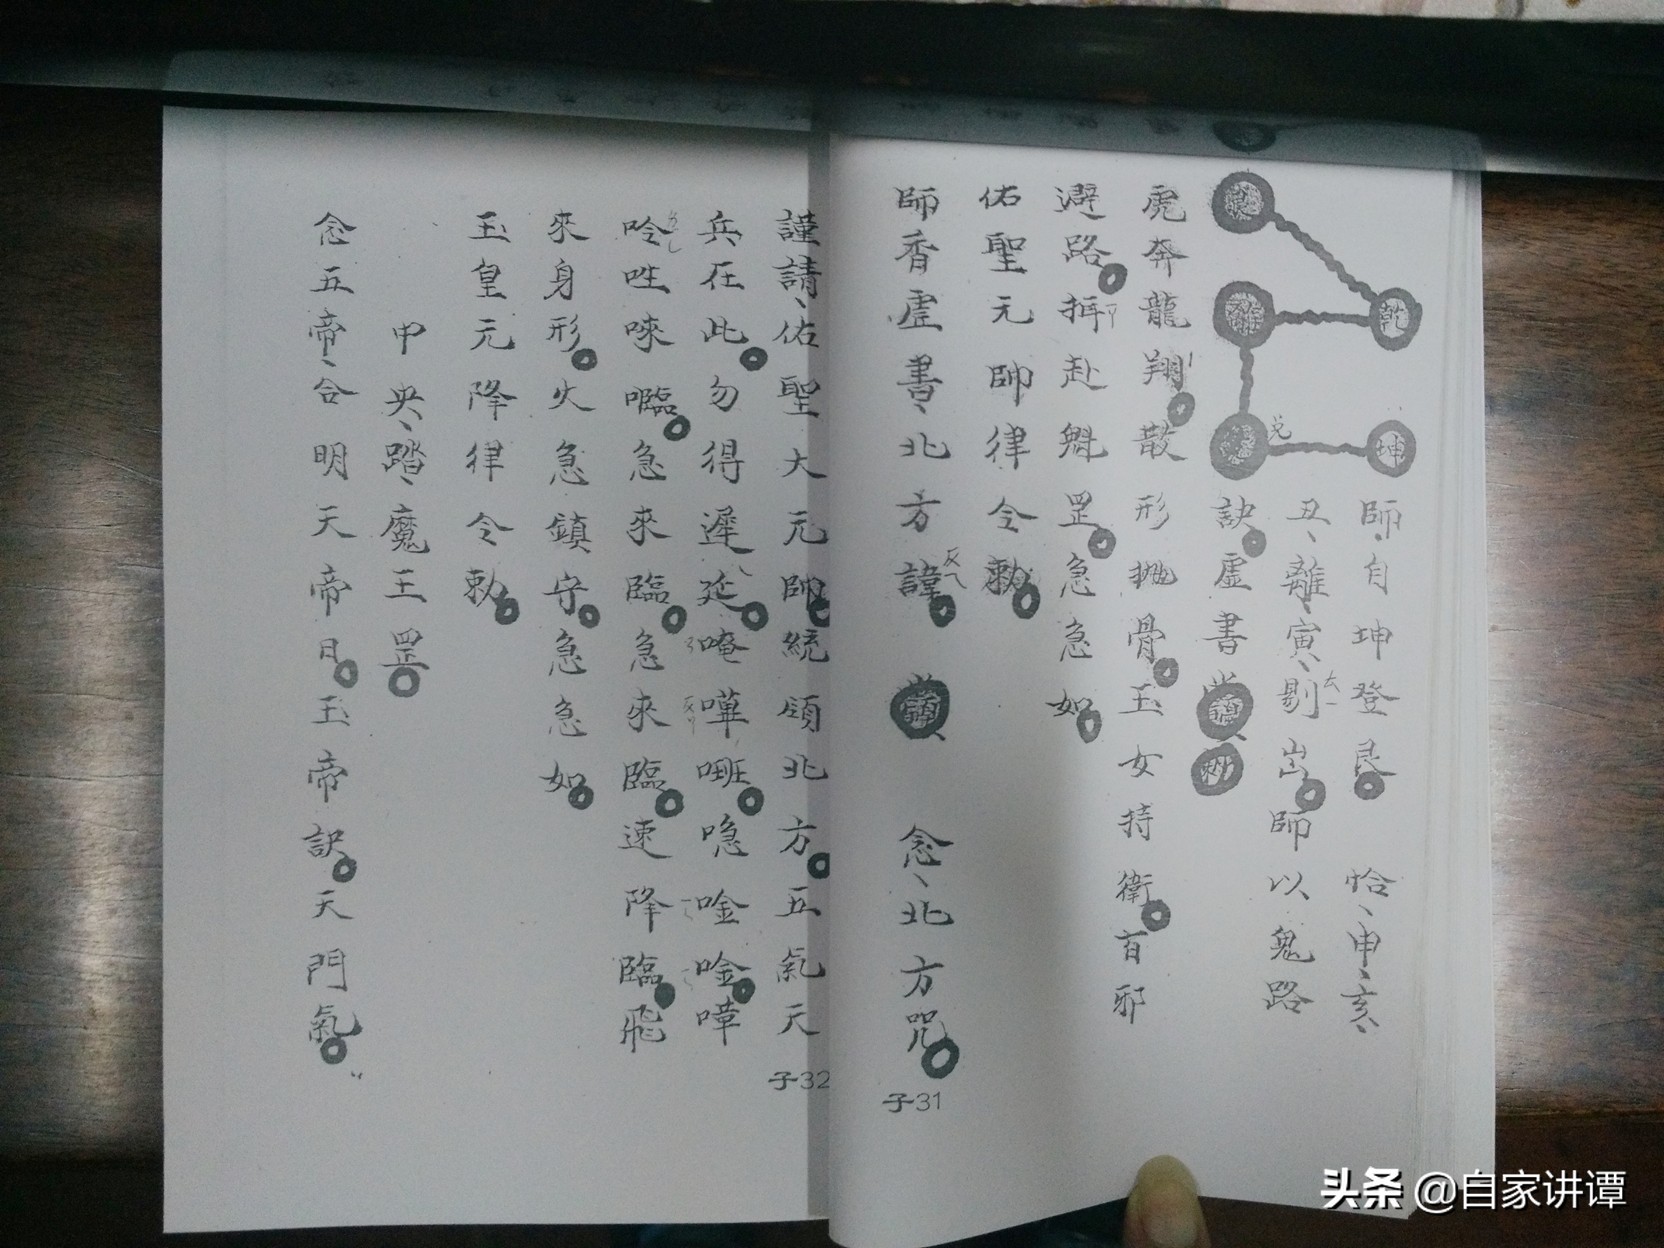 乾
坤
兑
師自坤登艮 恰申亥
丑離寅剔 師以鬼路
訣虛書
虎奔龍翔散形拋骨玉女持衛百邪
避路 赴魁罡急急如
佑聖元帥律令勅
師香虛書北方諱 念北方咒
子31
謹請佑聖大元帥統領北方五氣天
兵在此勿得遲延唵嗶 噫唫唫嘩
呤 唻嚂急來臨急來臨速降臨飛
來身形火急鎮守急急如
玉皇元降律令勅
中央踏魔王罡
念五帝合明天帝日玉帝訣天門氣
子32
头条 @自家讲谭